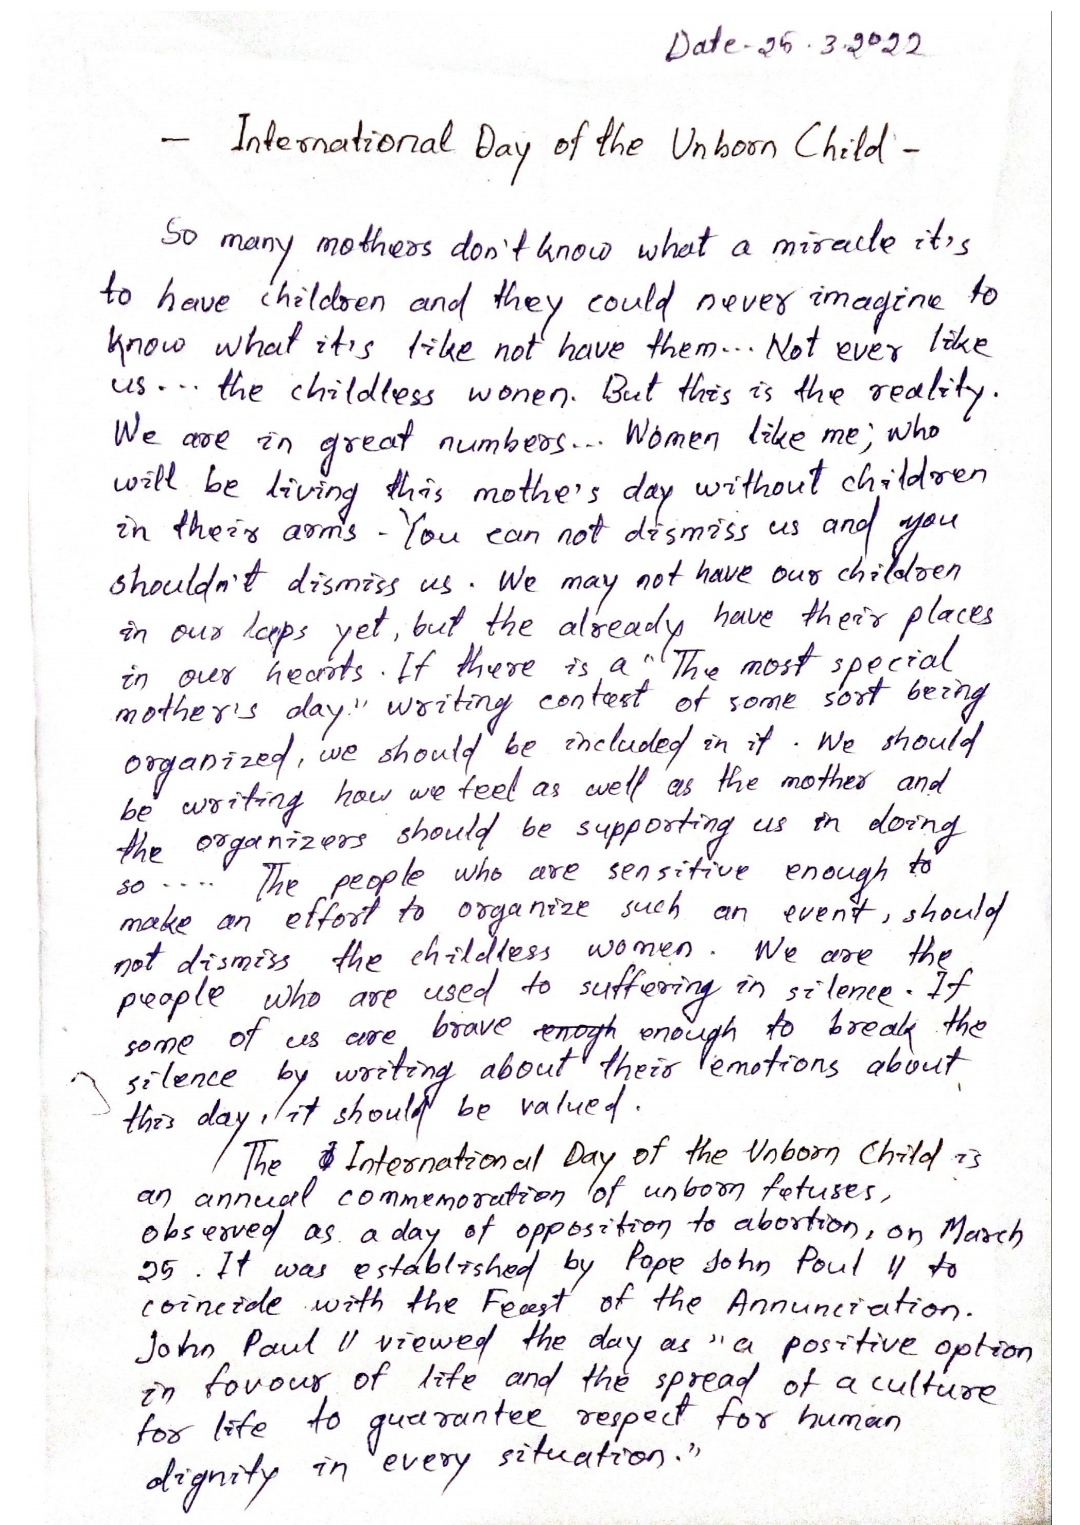 Date - 25 . 3.2022
- International Day of the Unborn Child -
So many mothers don't know what a miracle it's
to have children and they could never imagine to
know what it's like not have them... Not ever like
us ... the childless wonen. But this is the reality.
We are in great numbers... Women like me; who
will be living this mothe's day without children
in their arms - You can not dismiss us and you
shouldn't dismiss us. We may not have our children
in our laps yet, but the already have their places
in our hearts. If there is a "The most special
mother's day" writing contest of some sort being
organized, we should be included in it. We should
be writing how we feel as well as the mother and
the organizers should be supporting us in doing
so ..... The people who are sensitive enough to
make an effort to organize such an event, should
not dismiss the childless women. We are the
people who are used to suffering in silence. If
some of us are brave enogh enough to break the
silence by writing about their emotions about
this day, it should be valued.
The International Day of the Unborn Child is
an annual commemoration of unborn fetuses,
observed as a day of opposition to abortion, on March
25. It was established by Pope John Poul II to
coincide with the Feast of the Annunciation.
John Paul II viewed the day as "a positive option
in favour of life and the spread of a culture
for life to guarantee respect for human
dignity in every situation."